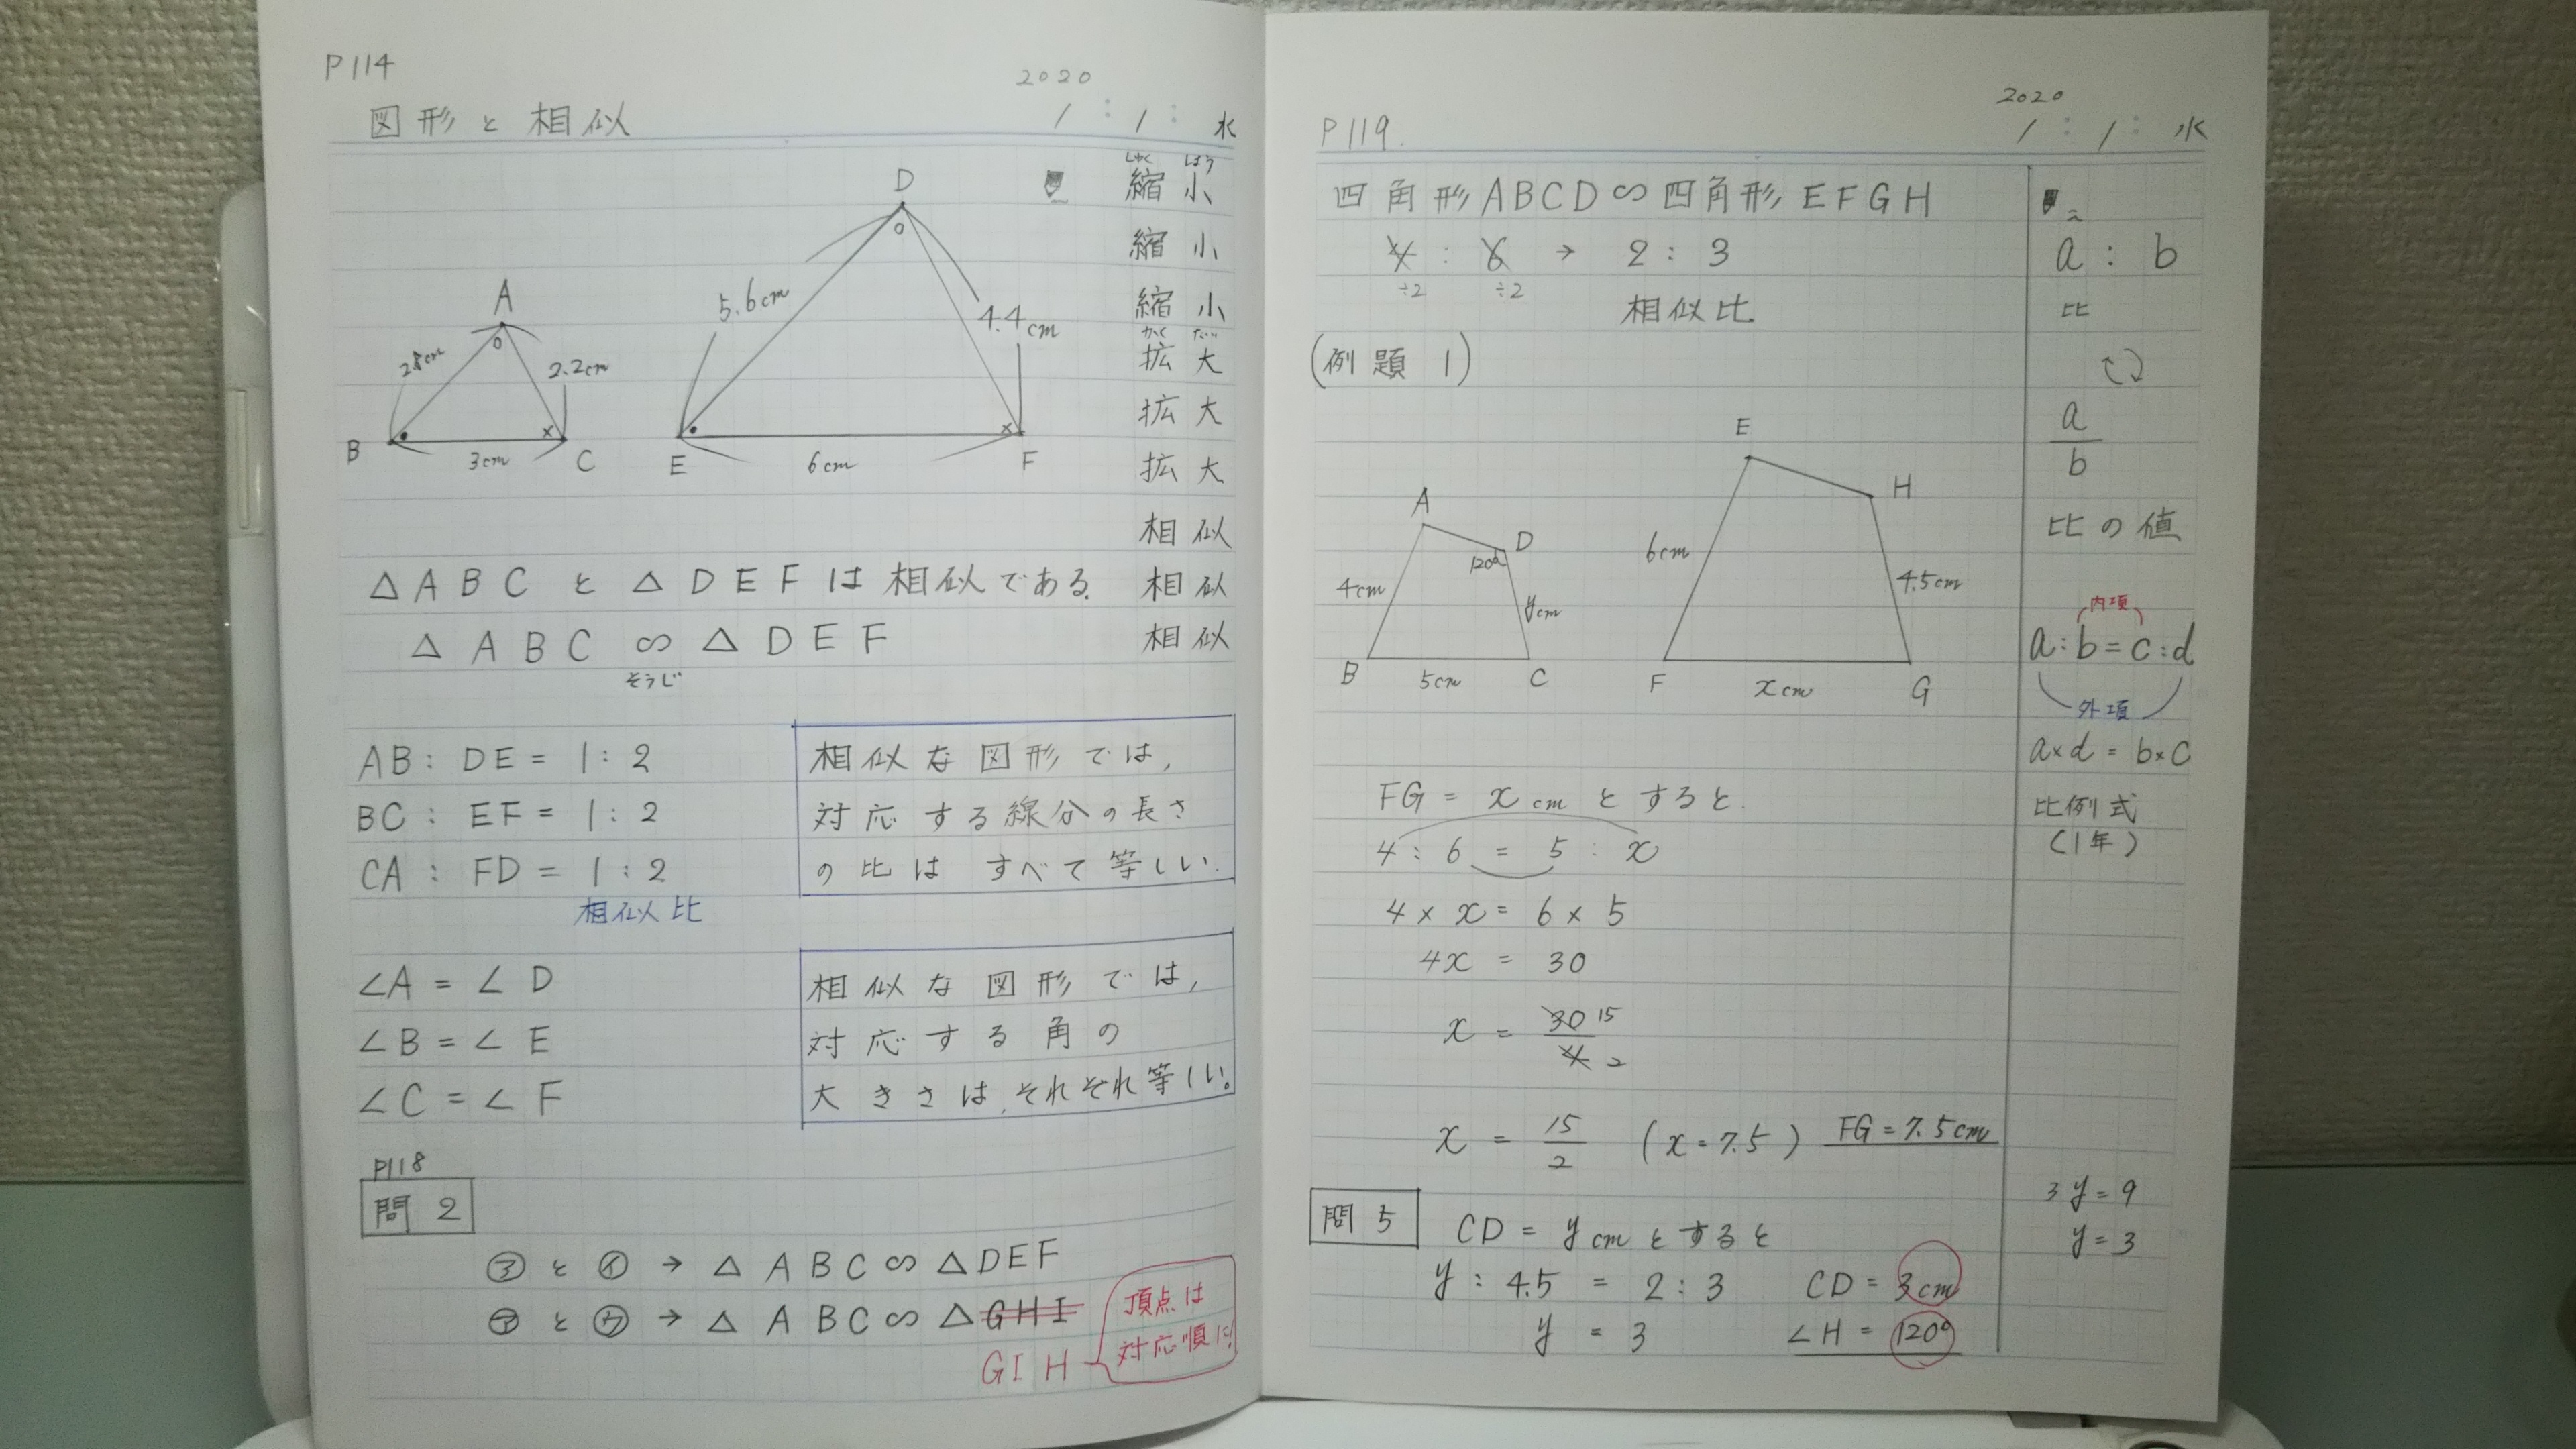 P114
2020
図形と相似
1 : 1 : 水
しゅく しょう
縮小
縮小
縮小
かく だい
拡大
拡大
拡大
相似
相似
相似
D
5.6cm
4.4cm
A
2.8cm
2.2cm
B
3cm
C
E
6cm
F
△ABCと△DEFは相似である.
△ABC∽△DEF
そうじ
AB: DE = 1:2
BC: EF = 1:2
CA: FD = 1:2
相似比
相似な図形では,
対応する線分の長さ
の比はすべて等しい.
∠A = ∠D
∠B = ∠E
∠C = ∠F
相似な図形では,
対応する角の
大きさは,それぞれ等しい。
P118
問2
㋐と㋑→△ABC∽△DEF
㋐と㋒→△ABC∽△GHI
GIH
頂点は
対応順に!
2020
P119.
1 : 1 : 水
四角形ABCD∽四角形EFGH
4 : 6 → 2:3
÷2 ÷2
相似比
(例題1)
E
H
A
D
120°
6cm
4cm
4.5cm
ycm
B
5cm
C
F
xcm
G
FG = xcmとすると.
4:6 = 5:x
4×x = 6×5
4x = 30
x = 30/4 15 2
x = 15/2 (x=7.5) FG=7.5cm
問5
CD = ycmとすると
y:4.5 = 2:3 CD = 3cm
y = 3 ∠H = 120°
a : b
比
a/b
比の値
内項
a:b=c:d
外項
a×d = b×c
比例式
(1年)
3y=9
y=3